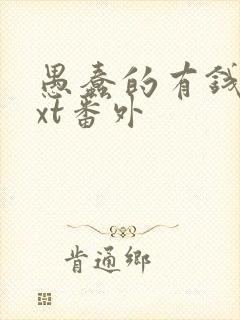 愚蠢的有钱
xt番外
肯通乡